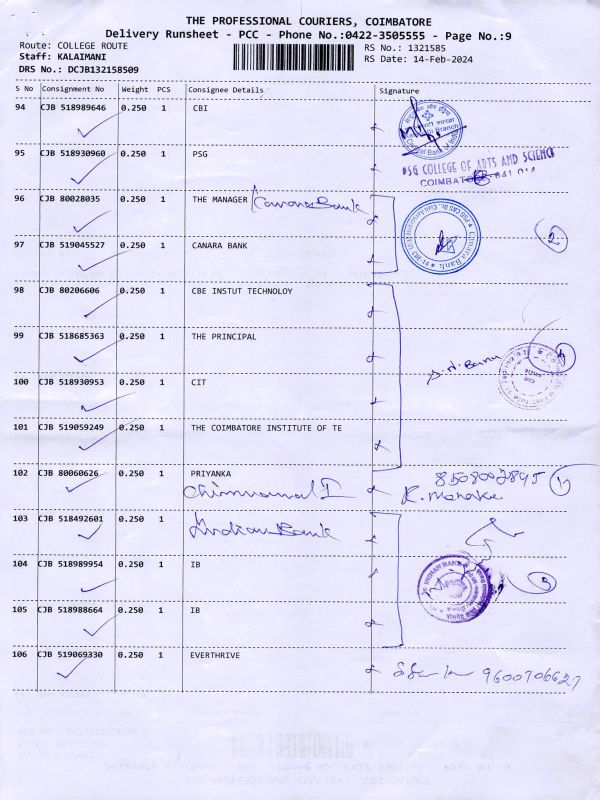 THE PROFESSIONAL COURIERS, COIMBATORE
Delivery Runsheet - PCC - Phone No.:0422-3505555 - Page No.:9
Route: COLLEGE ROUTE
RS No.: 1321585
Staff: KALAIMANI
RS Date: 14-Feb-2024
DRS No.: DCJB132158509
S No Consignment No Weight PCS Consignee Details Signature
94 CJB 518989646 0.250 1 CBI
95 CJB 518930960 0.250 1 PSG
PSG COLLEGE OF ARTS AND SCIENCE
COIMBATORE - 641 014
96 CJB 80028035 0.250 1 THE MANAGER Canara Bank
97 CJB 519045527 0.250 1 CANARA BANK
2
98 CJB 80206606 0.250 1 CBE INSTUT TECHNOLOY
99 CJB 518685363 0.250 1 THE PRINCIPAL
4
100 CJB 518930953 0.250 1 CIT
101 CJB 519059249 0.250 1 THE COIMBATORE INSTITUTE OF TE
102 CJB 80060626 0.250 1 PRIYANKA
1
103 CJB 518492601 0.250 1 Indian Bank
104 CJB 518989954 0.250 1 IB
3
105 CJB 518988664 0.250 1 IB
106 CJB 519069330 0.250 1 EVERTHRIVE
9600706627